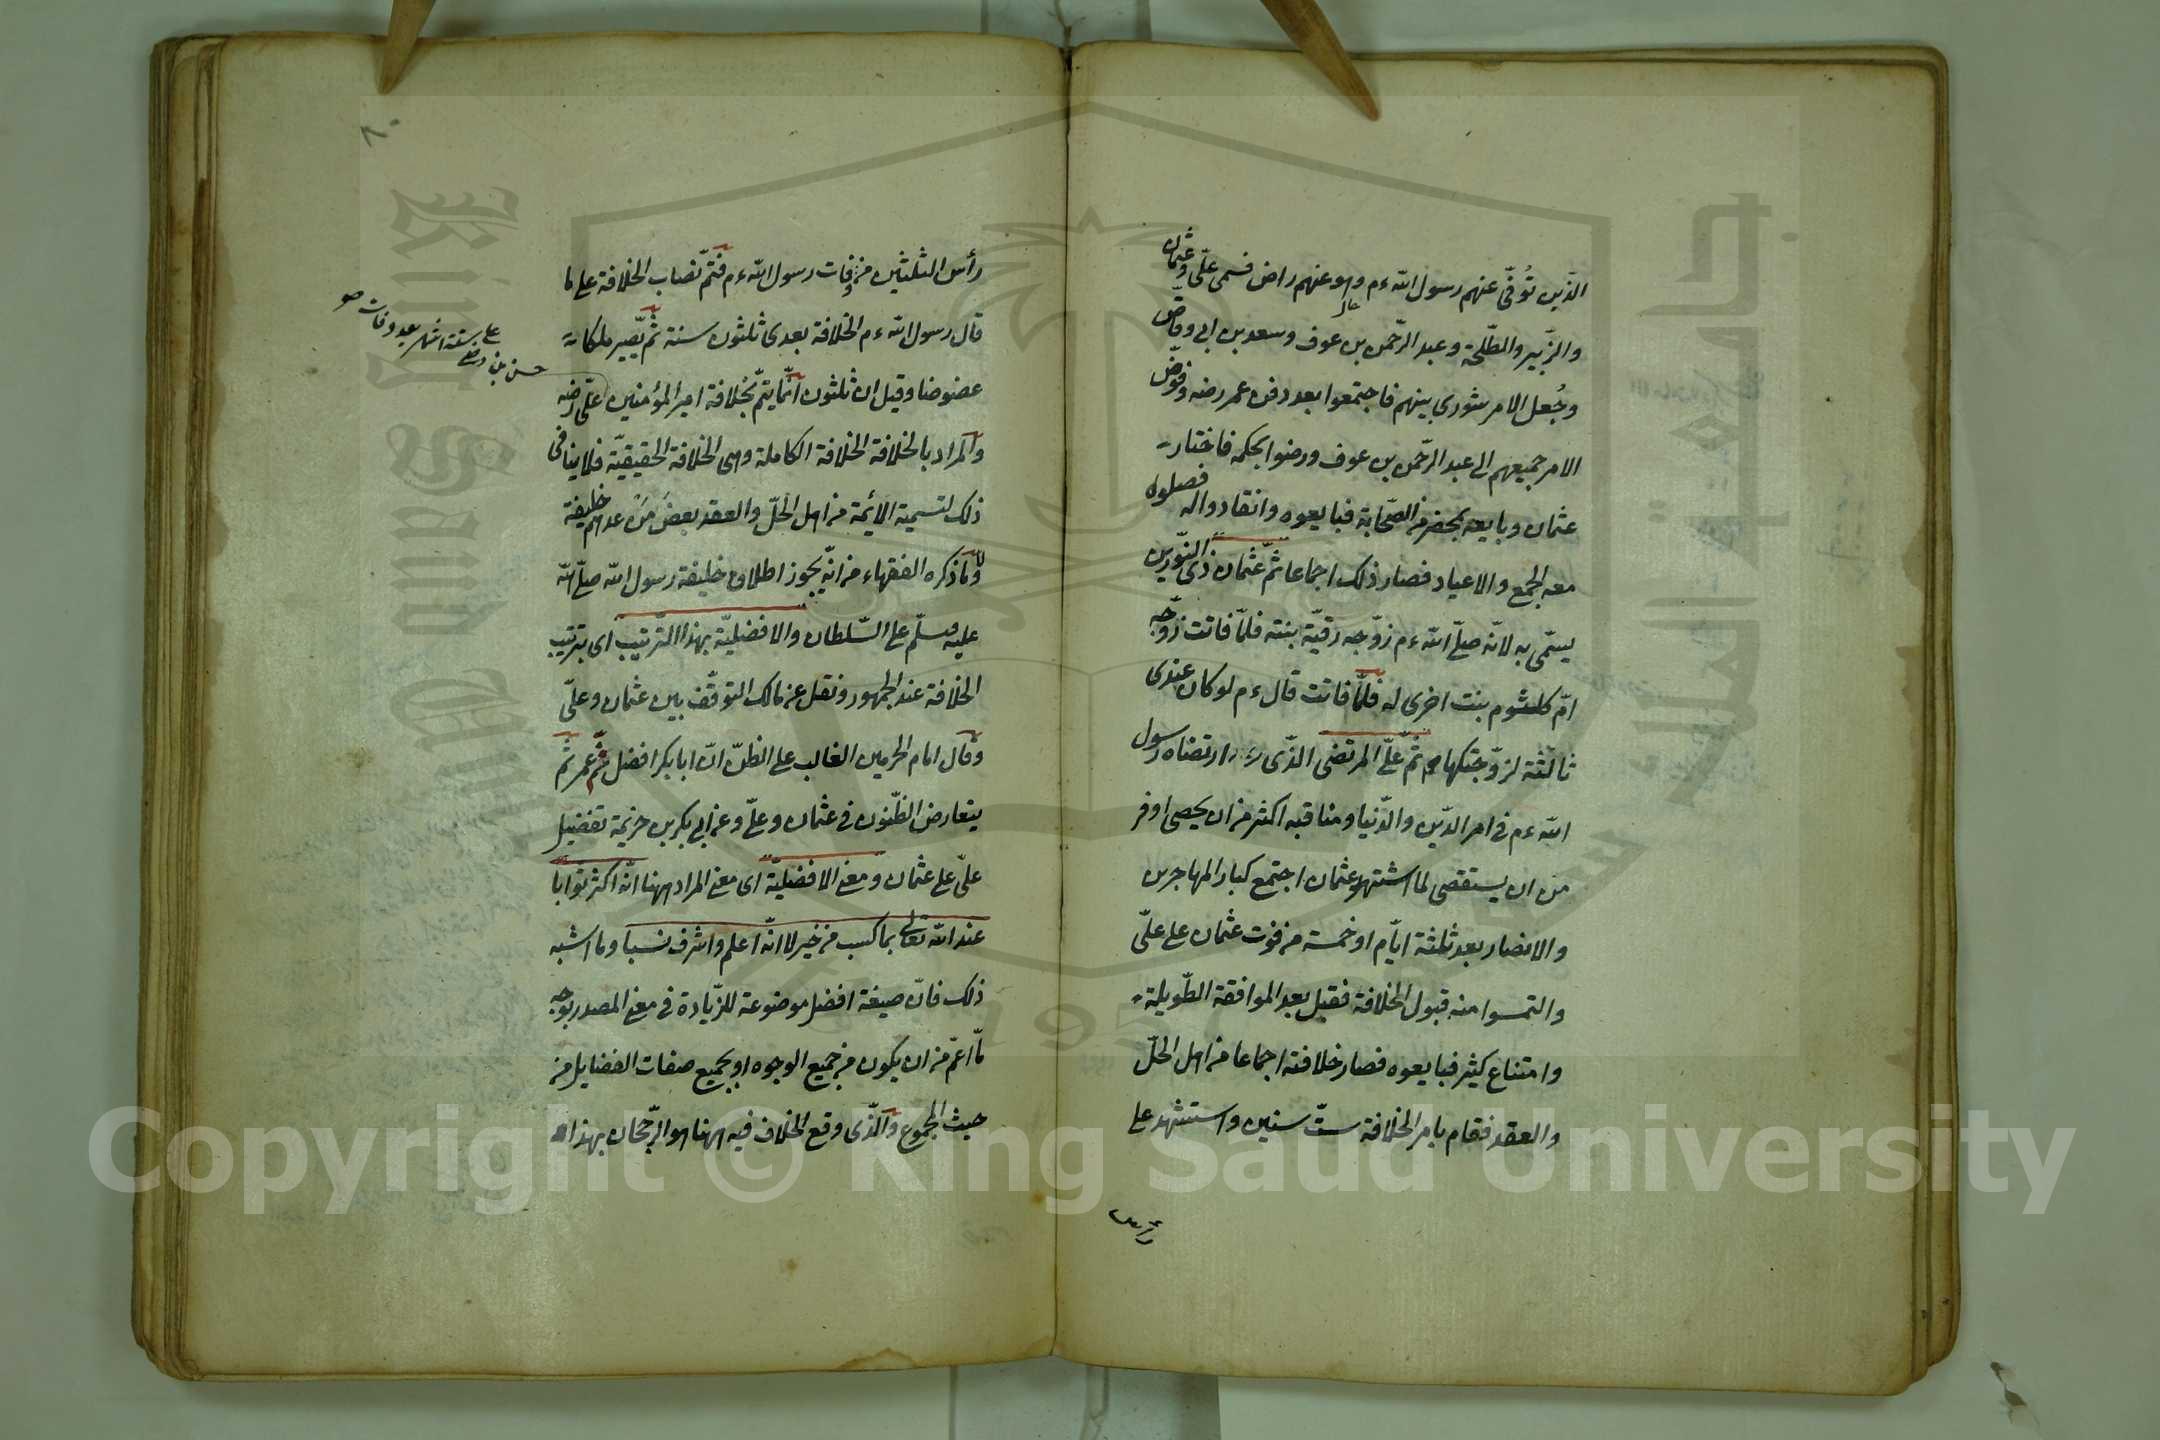 الذين توفّى عنهم رسول الله ءم وهو عنهم راض فسمى علّى وعثمان
والزّبير والطّلحة وعبد الرّحمن بن عوف وسعد بن ابى وقاص
وجُعل الامر شورى بينهم فاجتمعوا بعد دفن عمر رضه وفوّض
الامر جميعهم الى عبد الرّحمن بن عوف ورضوا بحكمه فاختار
عثمان وبايعه بمحضر من الصّحابة فبايعوه وانقادوا له فصلوا
معه الجمع والاعياد فصار ذلك اجماعا ثمّ عثمان ذى النّورين
يسمّى به لانّه صلّى الله ءم زوّجه رقيّة بنته فلمّا فاتت زوّجه
امّ كلثوم بنت اخرى له فلمّا فاتت قال ءم لو كان عندى
ثالثة لزوّجتكها ثمّ علّى المرتضى الذّى ارتضاه رسول
الله ءم فى امر الدّين والدّنيا ومناقبه اكثر من ان يحصى اوفر
من ان يستقصى لما اشتهر عثمان اجتمع كبار المهاجرين
والانصار بعد ثلثة ايّام او خمسة من فوت عثمان على علّى
والتمسوا منه قبول الخلافة فقبل بعد الموافقة الطّويلة
وامتناع كثير فبايعوه فصار خلافته اجماعا من اهل الحلّ
والعقد فقام بامر الخلافة ستّ سنين واستشهد على
رأس
٨٠
رأس الثلثين من وفات رسول الله ءم فتمّ نصاب الخلافة على ما
قال رسول الله ءم الخلافة بعدى ثلثون سنة ثمّ يصير ملكا
عضوضا وقيل ان ثلثون انّما يتمّ بخلافة امير المؤمنين علّى رضه
والمراد بالخلافة الخلافة الكاملة وهى الخلافة الحقيقيّة فلا ينافى
ذلك لتسمية الائمة من اهل الحلّ والعقد بعض من عداهم خليفة
ولا ما ذكره الفقهاء من انّه يجوز اطلاق خليفة رسول الله صلّى الله
عليه وسلّم على السّلطان والافضليّة بهذا الترتيب اى بترتيب
الخلافة عند الجمهور ونقل عن مالك التوقّف بين عثمان وعلّى
وقال امام الحرمين الغالب على الظنّ انّ ابا بكر افضل ثمّ عمر ثمّ
يتعارض الظّنون فى عثمان وعلّى وعن ابى بكر بن خزيمة تفضيل
علّى على عثمان ومعنى الافضليّة اى معنى المراد ههنا انّه اكثر ثوابا
عند الله تعالى بما كسب من خير لا انّه اعلم واشرف نسبا وما اشبه
ذلك فانّ صيغة افضل موضوعة للزّيادة فى معنى المصدر بوجه
مّا اعمّ من ان يكون من جميع الوجوه او بجميع صفات الفضايل من
حيث المجموع والّذى وقع الخلاف فيه ههنا هو الرّجحان بهذا
حسن بن علىّ رضى ستة اشهر بعد وفات
Copyright © King Saud University
King Saud University
1957